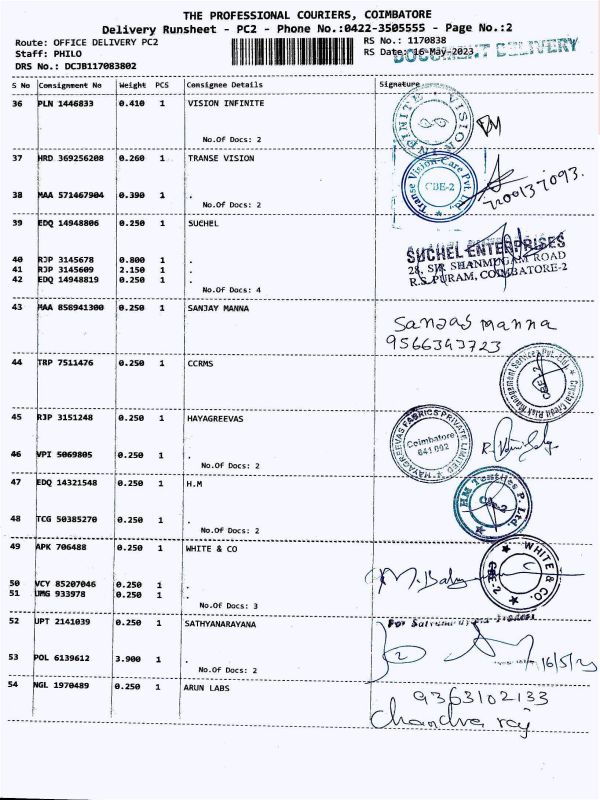 THE PROFESSIONAL COURIERS, COIMBATORE
Delivery Runsheet - PC2 - Phone No.:0422-3505555 - Page No.:2
Route: OFFICE DELIVERY PC2 RS No.: 1170838
Staff: PHILO RS Date: 16-May-2023 DOCUMENT DELIVERY
DRS No.: DCJB117083802
S No Consignment No Weight PCS Consignee Details Signature
36 PLN 1446833 0.410 1 VISION INFINITE
VISION INFINITE
No.Of Docs: 2
37 HRD 369256208 0.260 1 TRANSE VISION
Transe Vision Care Pvt. Ltd. CBE-2
38 MAA 571467904 0.390 1 .
No.Of Docs: 2
39 EDQ 14948806 0.250 1 SUCHEL
SUCHEL ENTERPRISES
28, SIR SHANMUGAM ROAD
R.S. PURAM, COIMBATORE-2
40 RJP 3145678 0.800 1 .
41 RJP 3145609 2.150 1 .
42 EDQ 14948819 0.250 1 .
No.Of Docs: 4
43 MAA 858941300 0.250 1 SANJAY MANNA
Manna
9566393723
44 TRP 7511476 0.250 1 CCRMS
Crystal Credit Risk Management Services Pvt. Ltd. CBE-2
45 RJP 3151248 0.250 1 HAYAGREEVAS
HAYAGREEVAS FABRICS PRIVATE LIMITED Coimbatore 641 002
46 VPI 5069805 0.250 1 .
No.Of Docs: 2
47 EDQ 14321548 0.250 1 H.M
HM Textiles P. Ltd
48 TCG 50385270 0.250 1 .
No.Of Docs: 2
49 APK 706488 0.250 1 WHITE & CO
WHITE & CO. CBE-2
50 VCY 85207046 0.250 1 .
51 UMG 933978 0.250 1 .
No.Of Docs: 3
52 UPT 2141039 0.250 1 SATHYANARAYANA
53 POL 6139612 3.900 1 .
16/5/23
No.Of Docs: 2
54 NGL 1970489 0.250 1 ARUN LABS
9363102133
Chandra raj